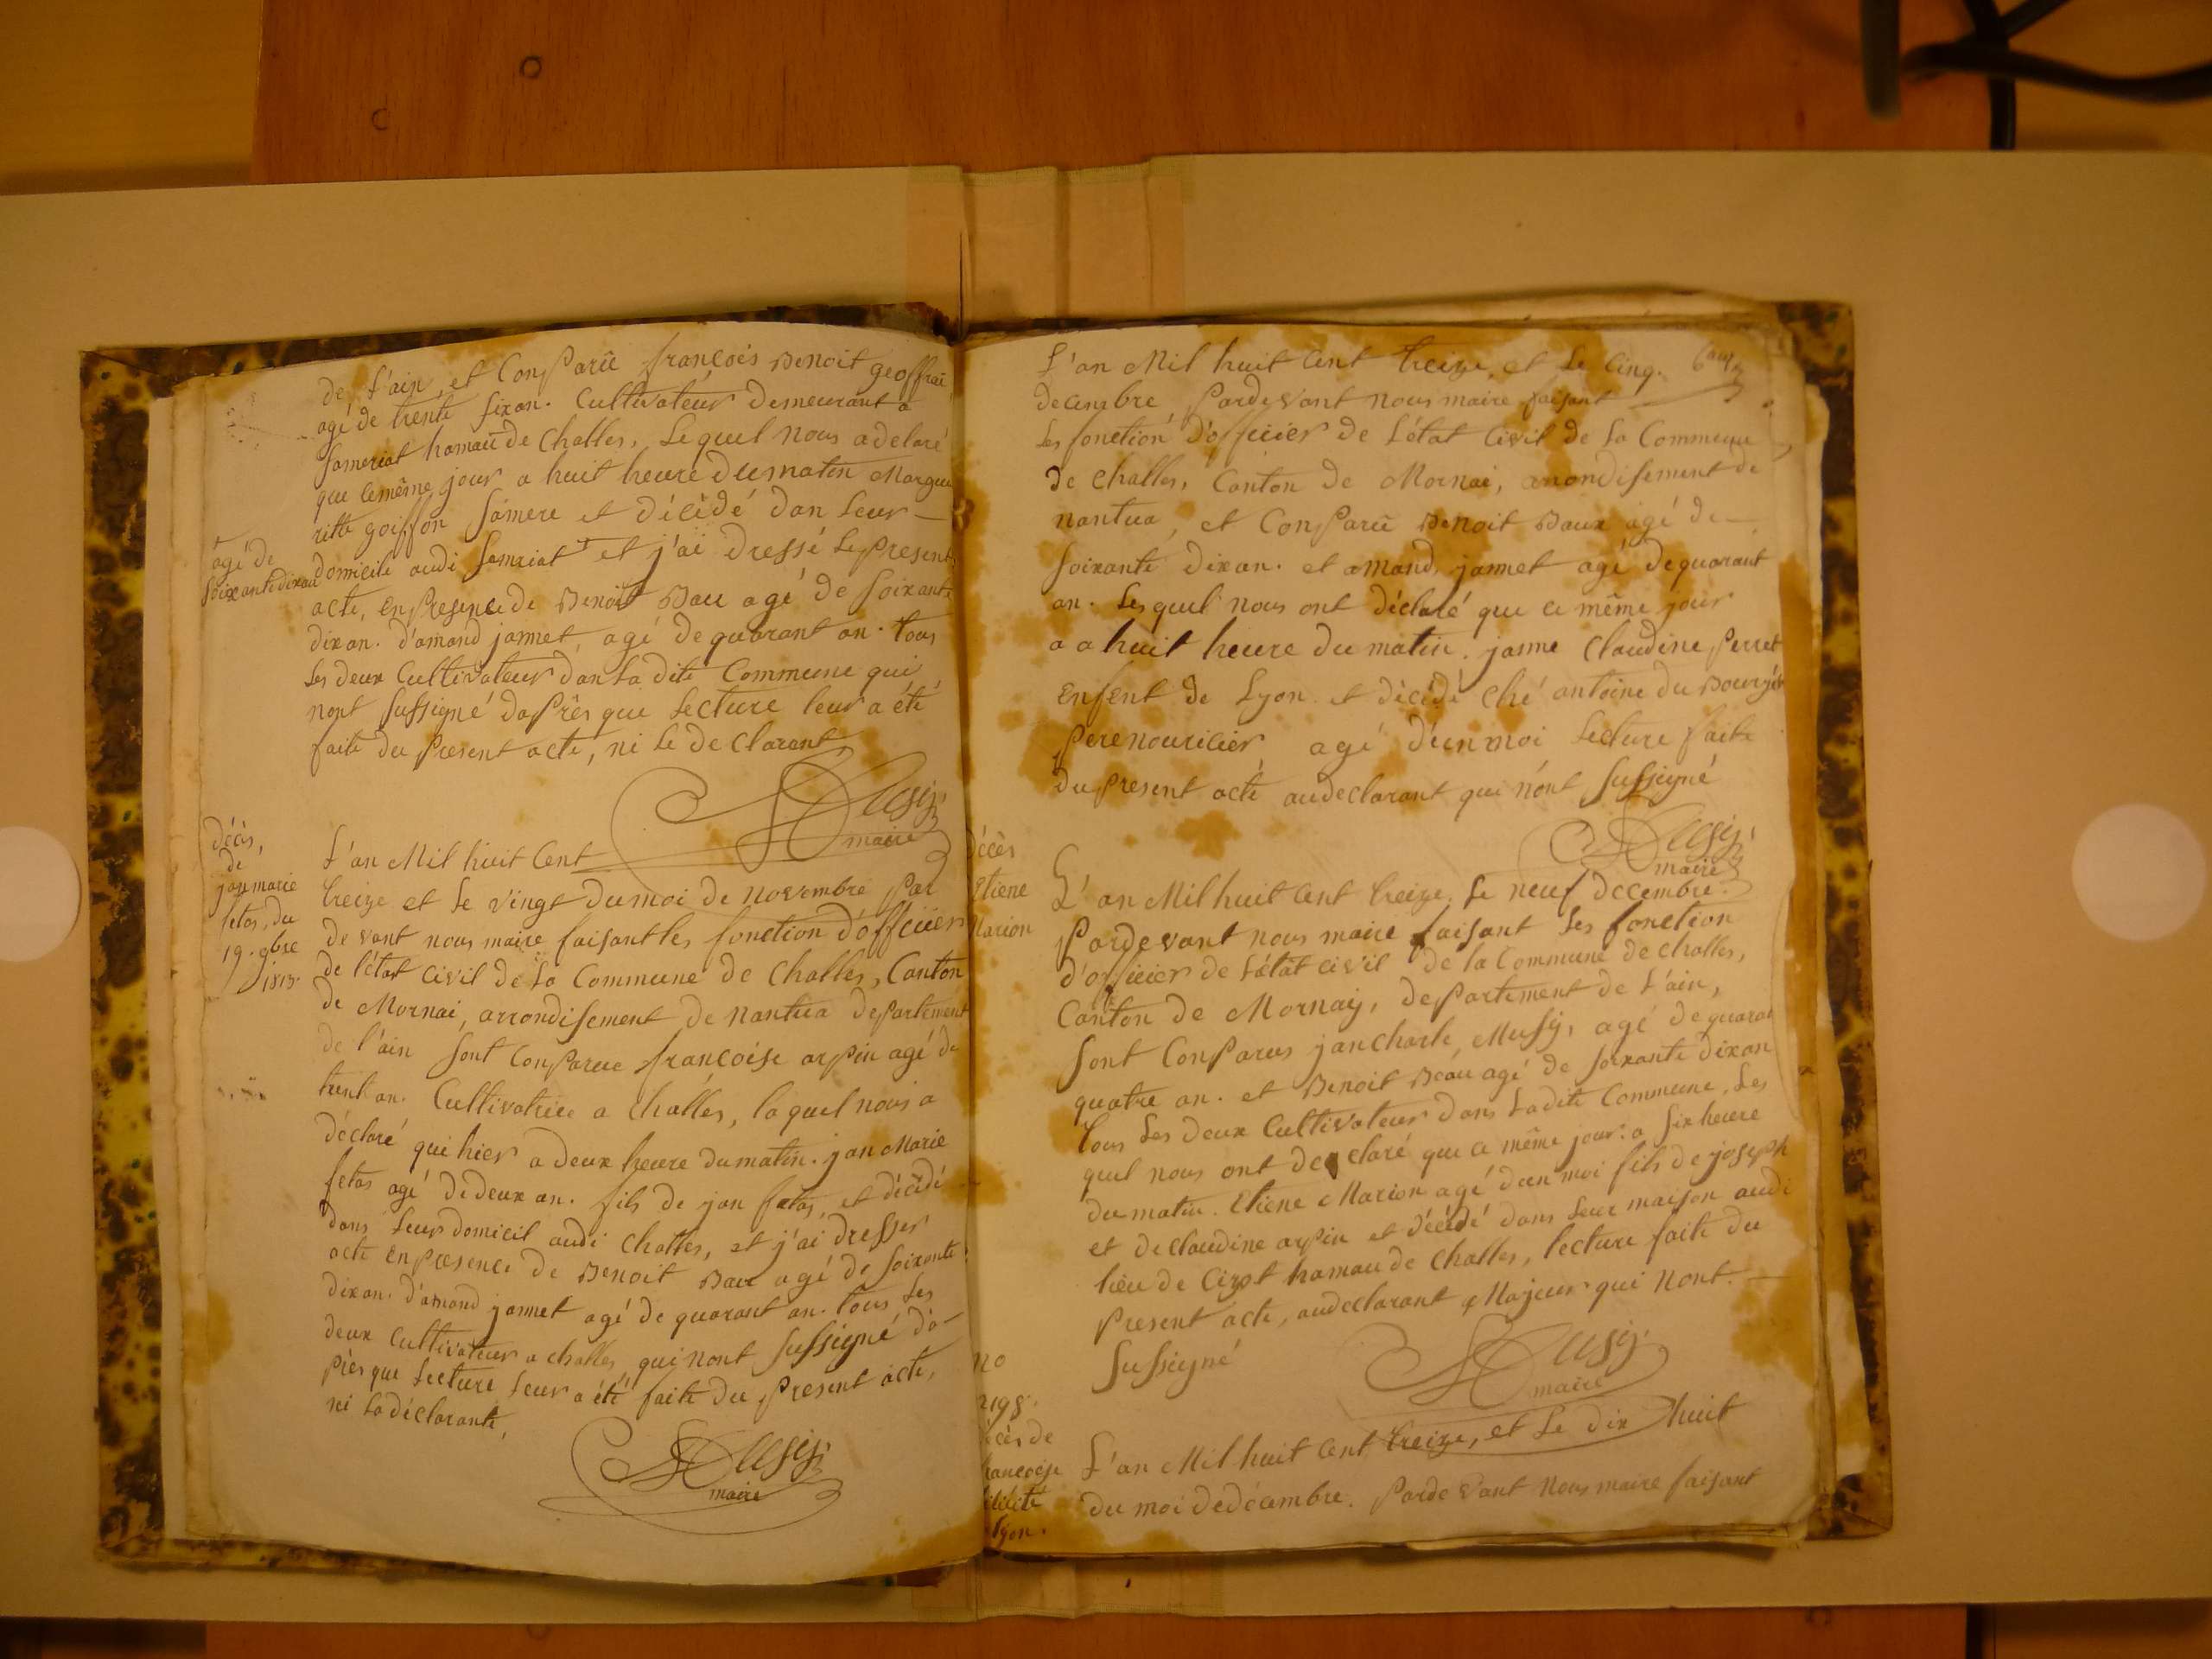 de l'ain, et Conparû françois Benoit geoffrai
agé de trente sixan. Cultivateur demeurant a
sameriat hamaû de Challes, Lequel nous a delaré
que cemême jour a huit heure dumatin Margue
ritte goiffon samere et décédé dan leur —
domicile audi samriat + et j'ai dressé le present
+
agé de
soixante dixan
acte, en presence de Benoit Bau agé de soixante
dixan. d'amand jannet, agé de quarant an. tous
les deux Cultivateur dan la dite Commune qui
nont sussigné daprês que lecture leur a été
faite du present acte, ni le declarant
Musy
maire
décès,
de
jan marie
fetas, du
19. 9bre
1813.
L'an Mil huit Cent
treize et le vingt dumoi de novembre par
devant nous maire faisant les fonction d'officier
de l'état civil de la Commune de Challes, Canton
de Mornai, arrondisement de nantua departement
de l'ain sont Conparue françoise arpin agé de
trent an. Cultivatrice a Challes, laquel nous a
déclaré qui hier a deux heure dumatin. jan Marie
fetas agé dedeux an. fils de jan fetas, et décédé
dans leur domicil audi Challes, et j'ai dresser
acte en presence de Benoit Bau agé de soixante
dixan. d'amand jannet agé de quarant an. tous les
deux Cultivateur a challes qui nont sussigné da-
près que lecture leur a été faite du present acte,
ni la déclarante,
Musy
maire
L'an Mil huit Cent treize, et le Cinq.
decembre pardevant nous maire faisant
les fonction d'officier de l'état Civil de la Commune
de Challes, Canton de Mornai, arrondisement de
nantua, et Conparû Benoit Baux agé de —
soixante dixan. et amand jannet agé dequarant
an. lesquel nous ont déclaré que ce même jour
a a huit heure du matin. janne Claudine perret
enfent de Lyon et décédé ché antoine du Bourget
père nouricier agé d'un moi lecture faite
du present acte audeclarant qui n'ont sussigné
Musy
maire
décès
Etiene
Marion
L'an Mil huit Cent treize, le neuf decembre.
Pardevant nous maire faisant les fonction
d'officier de l'état civil de la Commune de challes,
Canton de Mornay, departement de l'ain,
sont Conparus jan charle, Musy, agé de quarat
quatre an. et Benoit Beau agé de soixante dixan
tous les deux Cultivateur dans ladite Commune, les
quel nous ont declaré que ce même jour. a six heure
du matin. Etiene Marion agé dun moi fils de joseph
et declaudine arpin et décédé dans leur maison audi
lieu de Cizot hamau de Challes, lecture faite du
present acte, audeclarant Majeur qui nont. —
sussigné
Musy
maire
no
2198.
décès de
françoise
félicité
lyon.
L'an Mil huit Cent treize, et le dix huit
du moi dedécembre. pardevant nous maire faisant